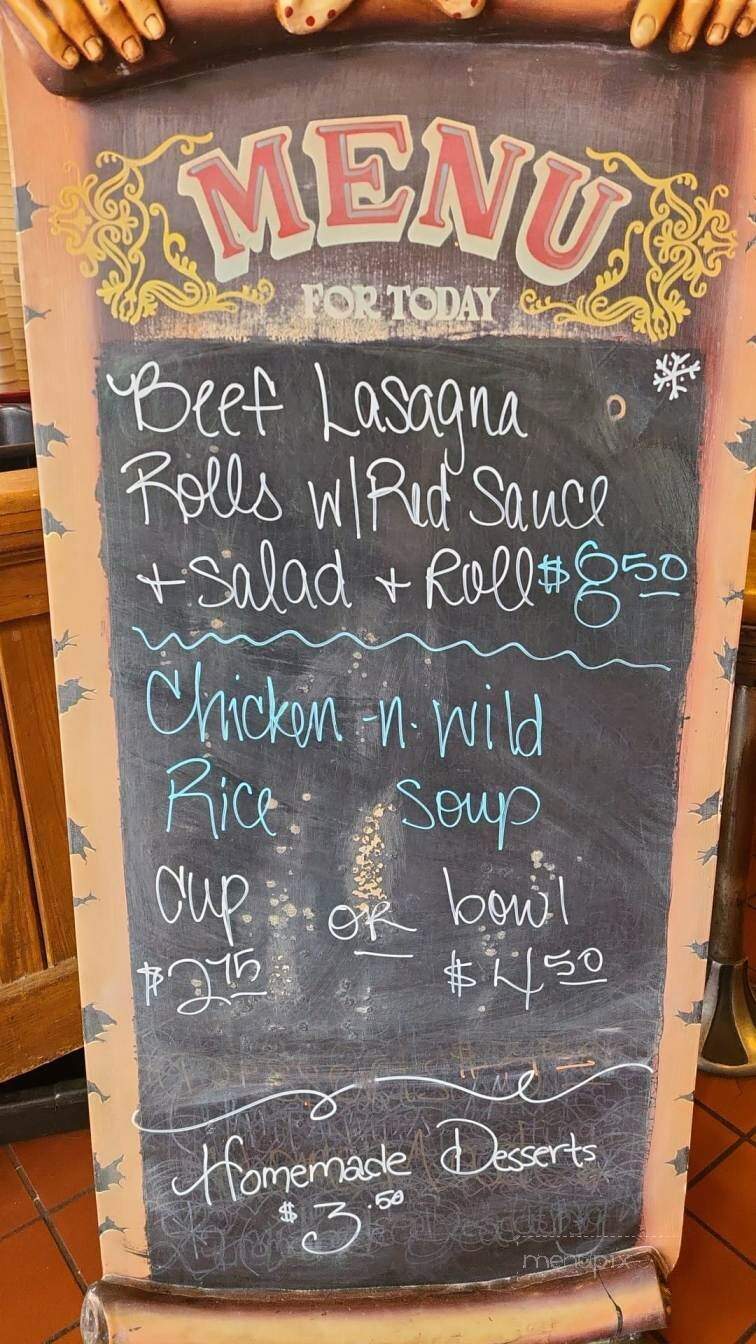 MENU
FOR TODAY
Beef Lasagna
Rolls w/Red Sauce
+ Salad + Roll $8.50
Chicken -n- Wild
Rice Soup
Cup OR bowl
$2.75 $4.50
Homemade Desserts
$3.50
menupix